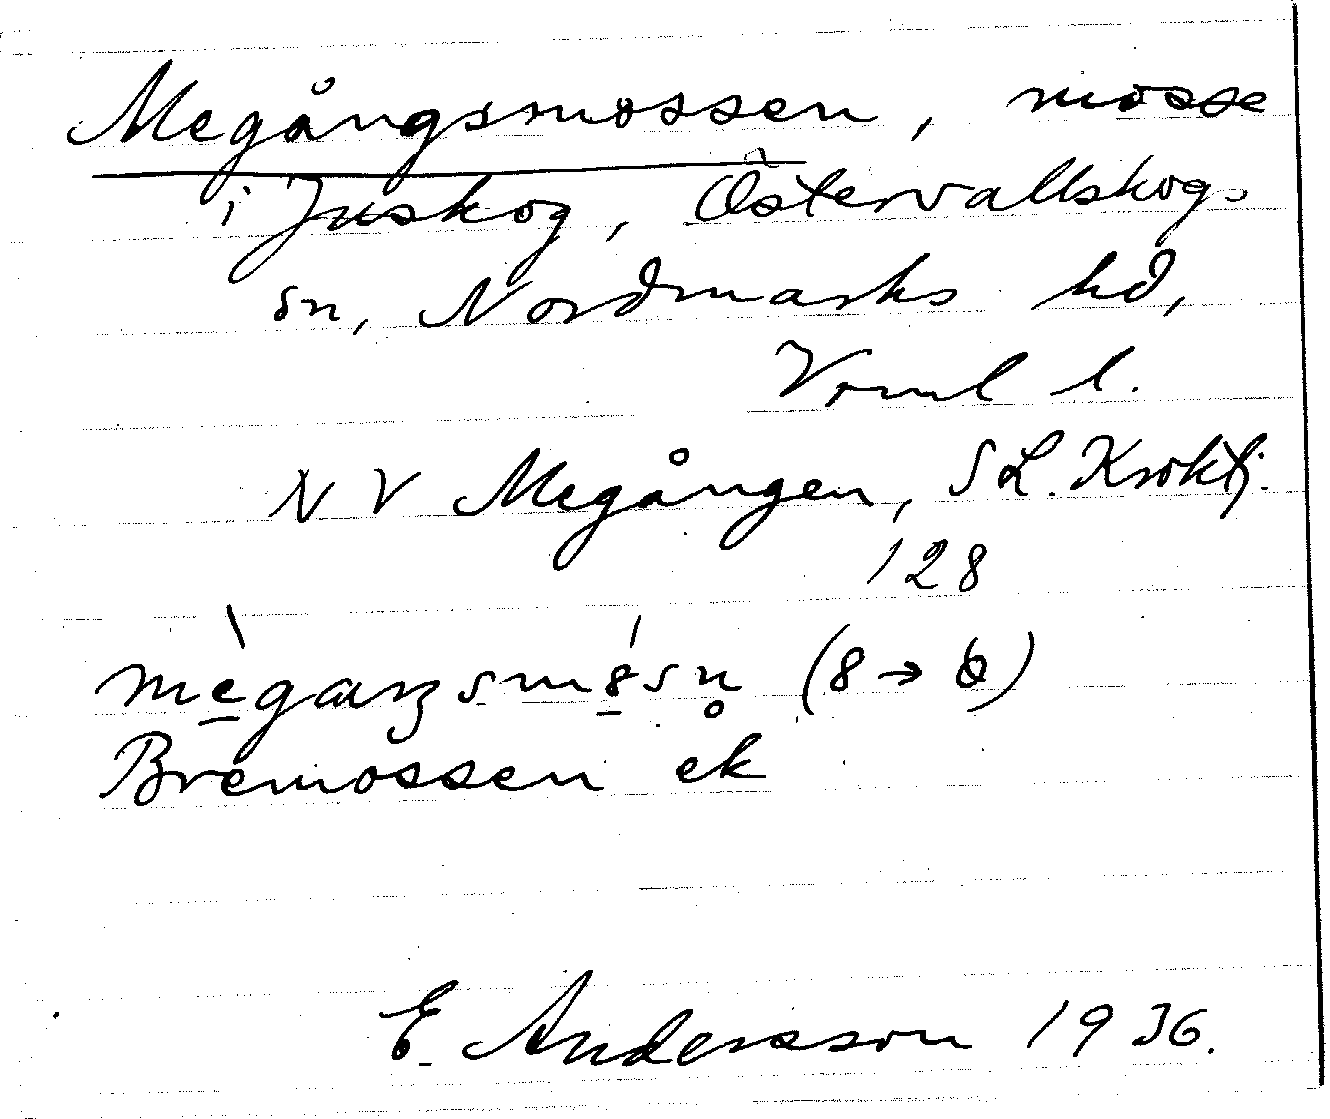 Megångsmossen, mosse
i Juskog, Östervallskogs
sn, Nordmarks hd,
Vrml l.
NV Megången, SL. Kroktj.
128
(8 → ɵ)
Bremossen ek
E. Andersson 1936.